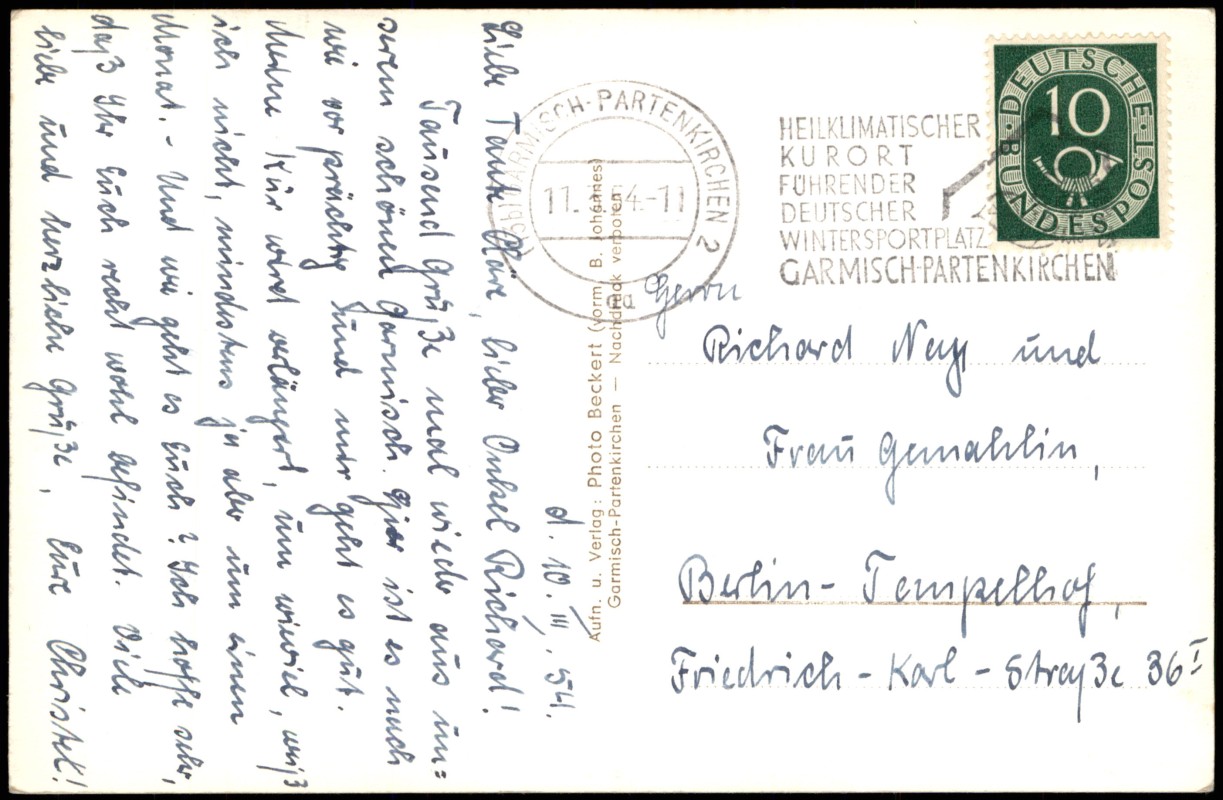 d. 10. III. 54.
Liebe Tante Kläre, lieber Onkel Richard!
Tausend Grüße mal wieder aus un=
serem schönen Garmisch. Hier ist es nach
wie vor prächtig und mir geht es gut.
Meine Kur wird verlängert, um wieviel, weiß
ich nicht, mindestens ja aber um einen
Monat. - Und wie geht es Euch? Ich hoffe sehr,
daß Ihr Euch recht wohl befindet. Viele
liebe und herzliche Grüße, Eure Christel!
Aufn. u. Verlag: Photo Beckert (vorm. B. Johannes)
Garmisch-Partenkirchen — Nachdruck verboten
(13b) GARMISCH-PARTENKIRCHEN 2
11. 54.-11
na
HEILKLIMATISCHER
KURORT
FÜHRENDER
DEUTSCHER
WINTERSPORTPLATZ
GARMISCH-PARTENKIRCHEN
DEUTSCHE BUNDESPOST
10
Herrn
Richard Ney und
Frau Gemahlin,
Berlin - Tempelhof,
Friedrich - Karl - Straße 36 I